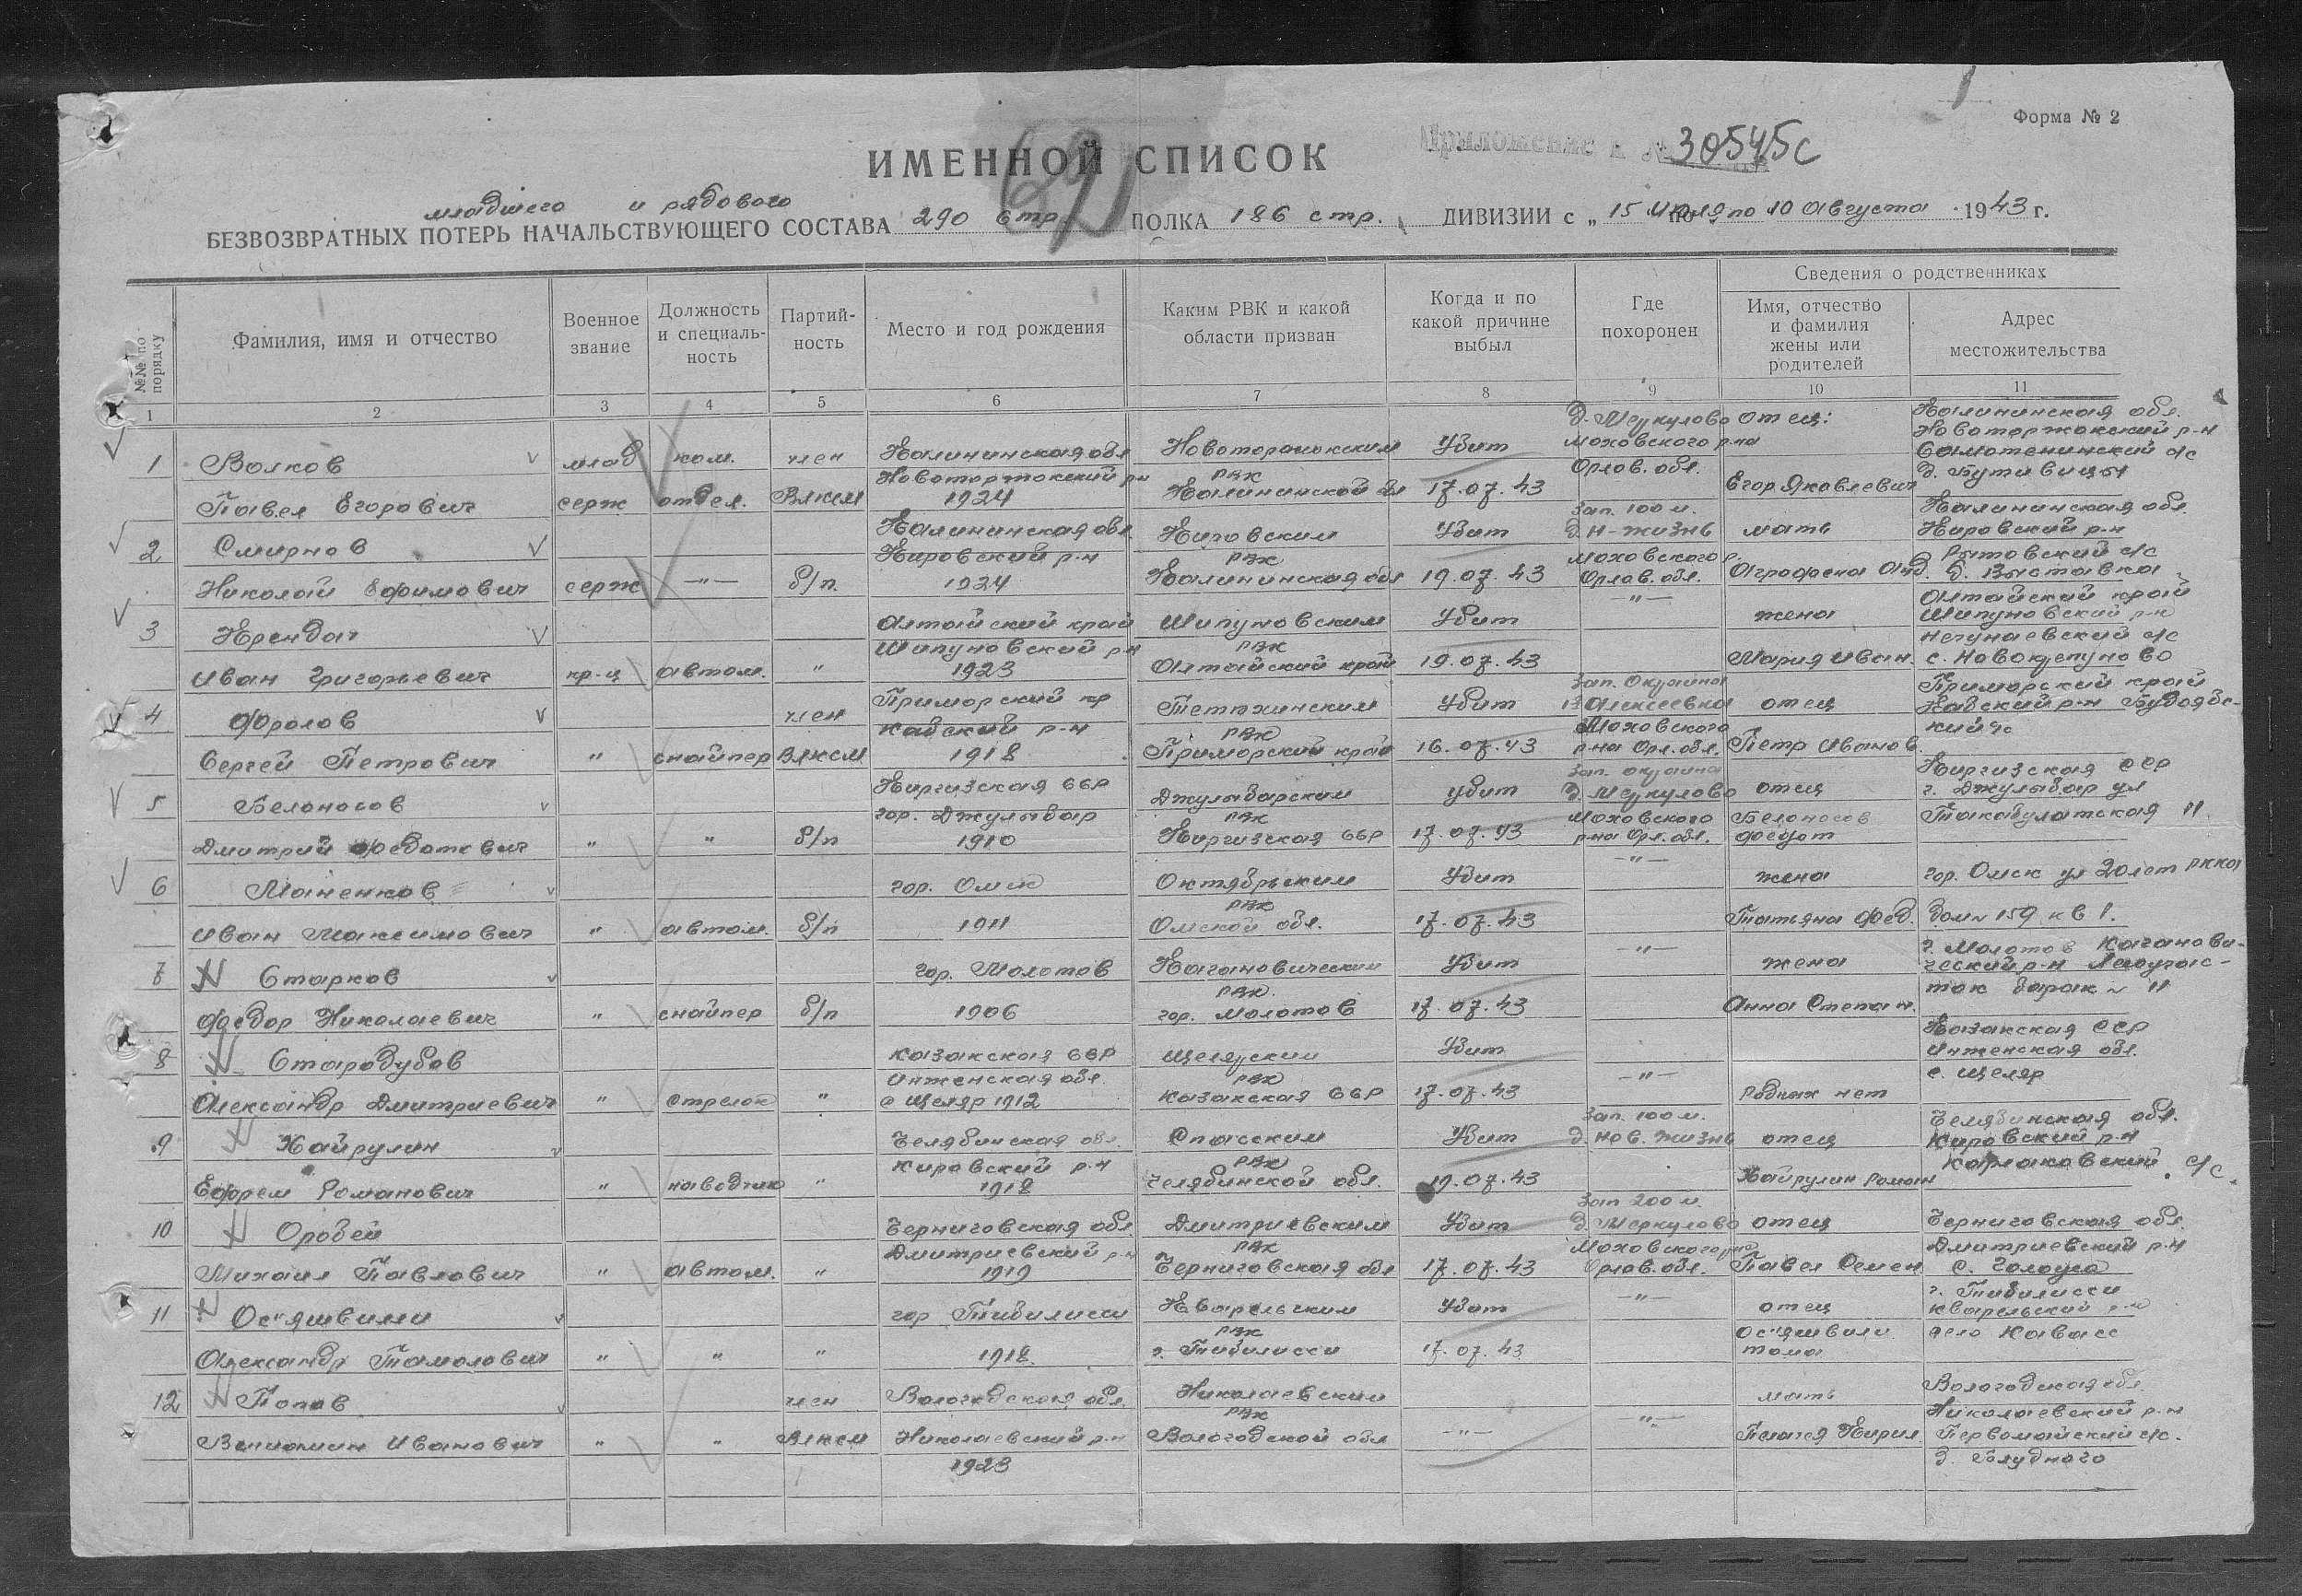 Форма № 2
Приложение к № 30545с
ИМЕННОЙ СПИСОК
младшего и рядового
БЕЗВОЗВРАТНЫХ ПОТЕРЬ НАЧАЛЬСТВУЮЩЕГО СОСТАВА 290 стр. ПОЛКА 186 стр. ДИВИЗИИ с „15 июля по 10 августа 1943 г.
№№ по порядку
Фамилия, имя и отчество
Военное звание
Должность и специаль-ность
Партий-ность
Место и год рождения
Каким РВК и какой области призван
Когда и по какой причине выбыл
Где похоронен
Сведения о родственниках
Имя, отчество и фамилия жены или родителей
Адрес местожительства
1 2 3 4 5 6 7 8 9 10 11
1 Волков Павел Егорович млад серж ком. отдел. член ВЛКСМ Калининская обл Новоторжокский рн 1924 Новоторжокским РВК Калининской обл Убит 17.07.43 д. Меркулово Моховского р-на Орлов. обл. отец: Егор Яковлевич Калининская обл. Новоторжокский р-н с/с д. Бутивицы
2 Смирнов Николай Ефимович серж —"— б/п. Калининская обл Кировский р-н 1924 Кировским РВК Калининская обл Убит 19.07.43 Зап. 100 м. д. Н-жизнь Моховского р. Орлов. обл. мать Аграфена Анд. Калининская обл. Кировский р-н Рытовский с/с д. Выставка
3 Крендач Иван Григорьевич кр-ц автом. " Алтайский край Шипуновский р-н 1923 Шипуновским РВК Алтайский край Убит 19.07.43 —"— жена Мария Иван. Алтайский край Шипуновский р-н с/с с.
4 Фролов Сергей Петрович " снайпер член ВЛКСМ Приморский кр р-н 1918 Тетюхинским РВК Приморский край Убит 16.07.43 Зап. окраина д Алексеевка Моховского р-на Орл. обл. отец Петр Иванов. Приморский край
5 Белоносов Дмитрий Федотович " " б/п Киргизская ССР гор. Джулыбар 1910 Джулыбарским РВК Киргизская ССР убит 17.07.43 Зап. окраина д. Меркулово Моховского р-на Орл. обл. отец Белоносов Федот Киргизская ССР г. Джулыбар ул Токобулатская 11.
6 Маненков Иван Максимович " автом. б/п гор. Омск 1911 Октябрьским РВК Омской обл. Убит 17.07.43 —"— жена Татьяна Фед. гор. Омск ул 20 лет РККА дом 159 кв 1.
7 Старков Федор Николаевич " снайпер б/п гор. Молотов 1906 Кагановическим РВК. гор. Молотов Убит 17.07.43 —"— жена Анна Степан. г. Молотов Каганови-ческий р-н барак № 11
8 Стародубов Александр Дмитриевич " стрелок " Казакская ССР обл. с Щеляр 1912 Щелярским РВК Казакская ССР Убит 17.07.43 —"— Родных нет Казакская ССР обл. с. Щеляр
9 Хайрулин Ефрем Романович " наводчик " Челябинская обл. Кировский р-н 1918 Спасским РВК Челябинской обл. Убит 19.07.43 Зап. 100 м. д. Нов. жизнь отец Хайрулин Роман Челябинская обл. Кировский р-н с/с.
10 Оробей Михаил Павлович " автом. " Черниговская обл. Дмитриевский р-н 1919 Дмитриевским РВК Черниговская обл Убит 17.07.43 Зап 200 м. д. Меркулово Моховского р-на Орлов. обл. отец Павел Семен. Черниговская обл. Дмитриевский р-н с.
11 Осияшвили Александр " " " гор Тибилисси 1918. Кварельским РВК г. Тибилисси Убит 17.07.43 —"— отец Осияшвили Тома г. Тибилисси Кварельский р-н
12 Попов Вениамин Иванович " " член ВЛКСМ Вологодская обл. Николаевский р-н 1923 Николаевским РВК Вологодской обл —"— —"— мать Пелагея Кирил Вологодская обл Николаевский р-н Первомайский с/с. д. Блудного